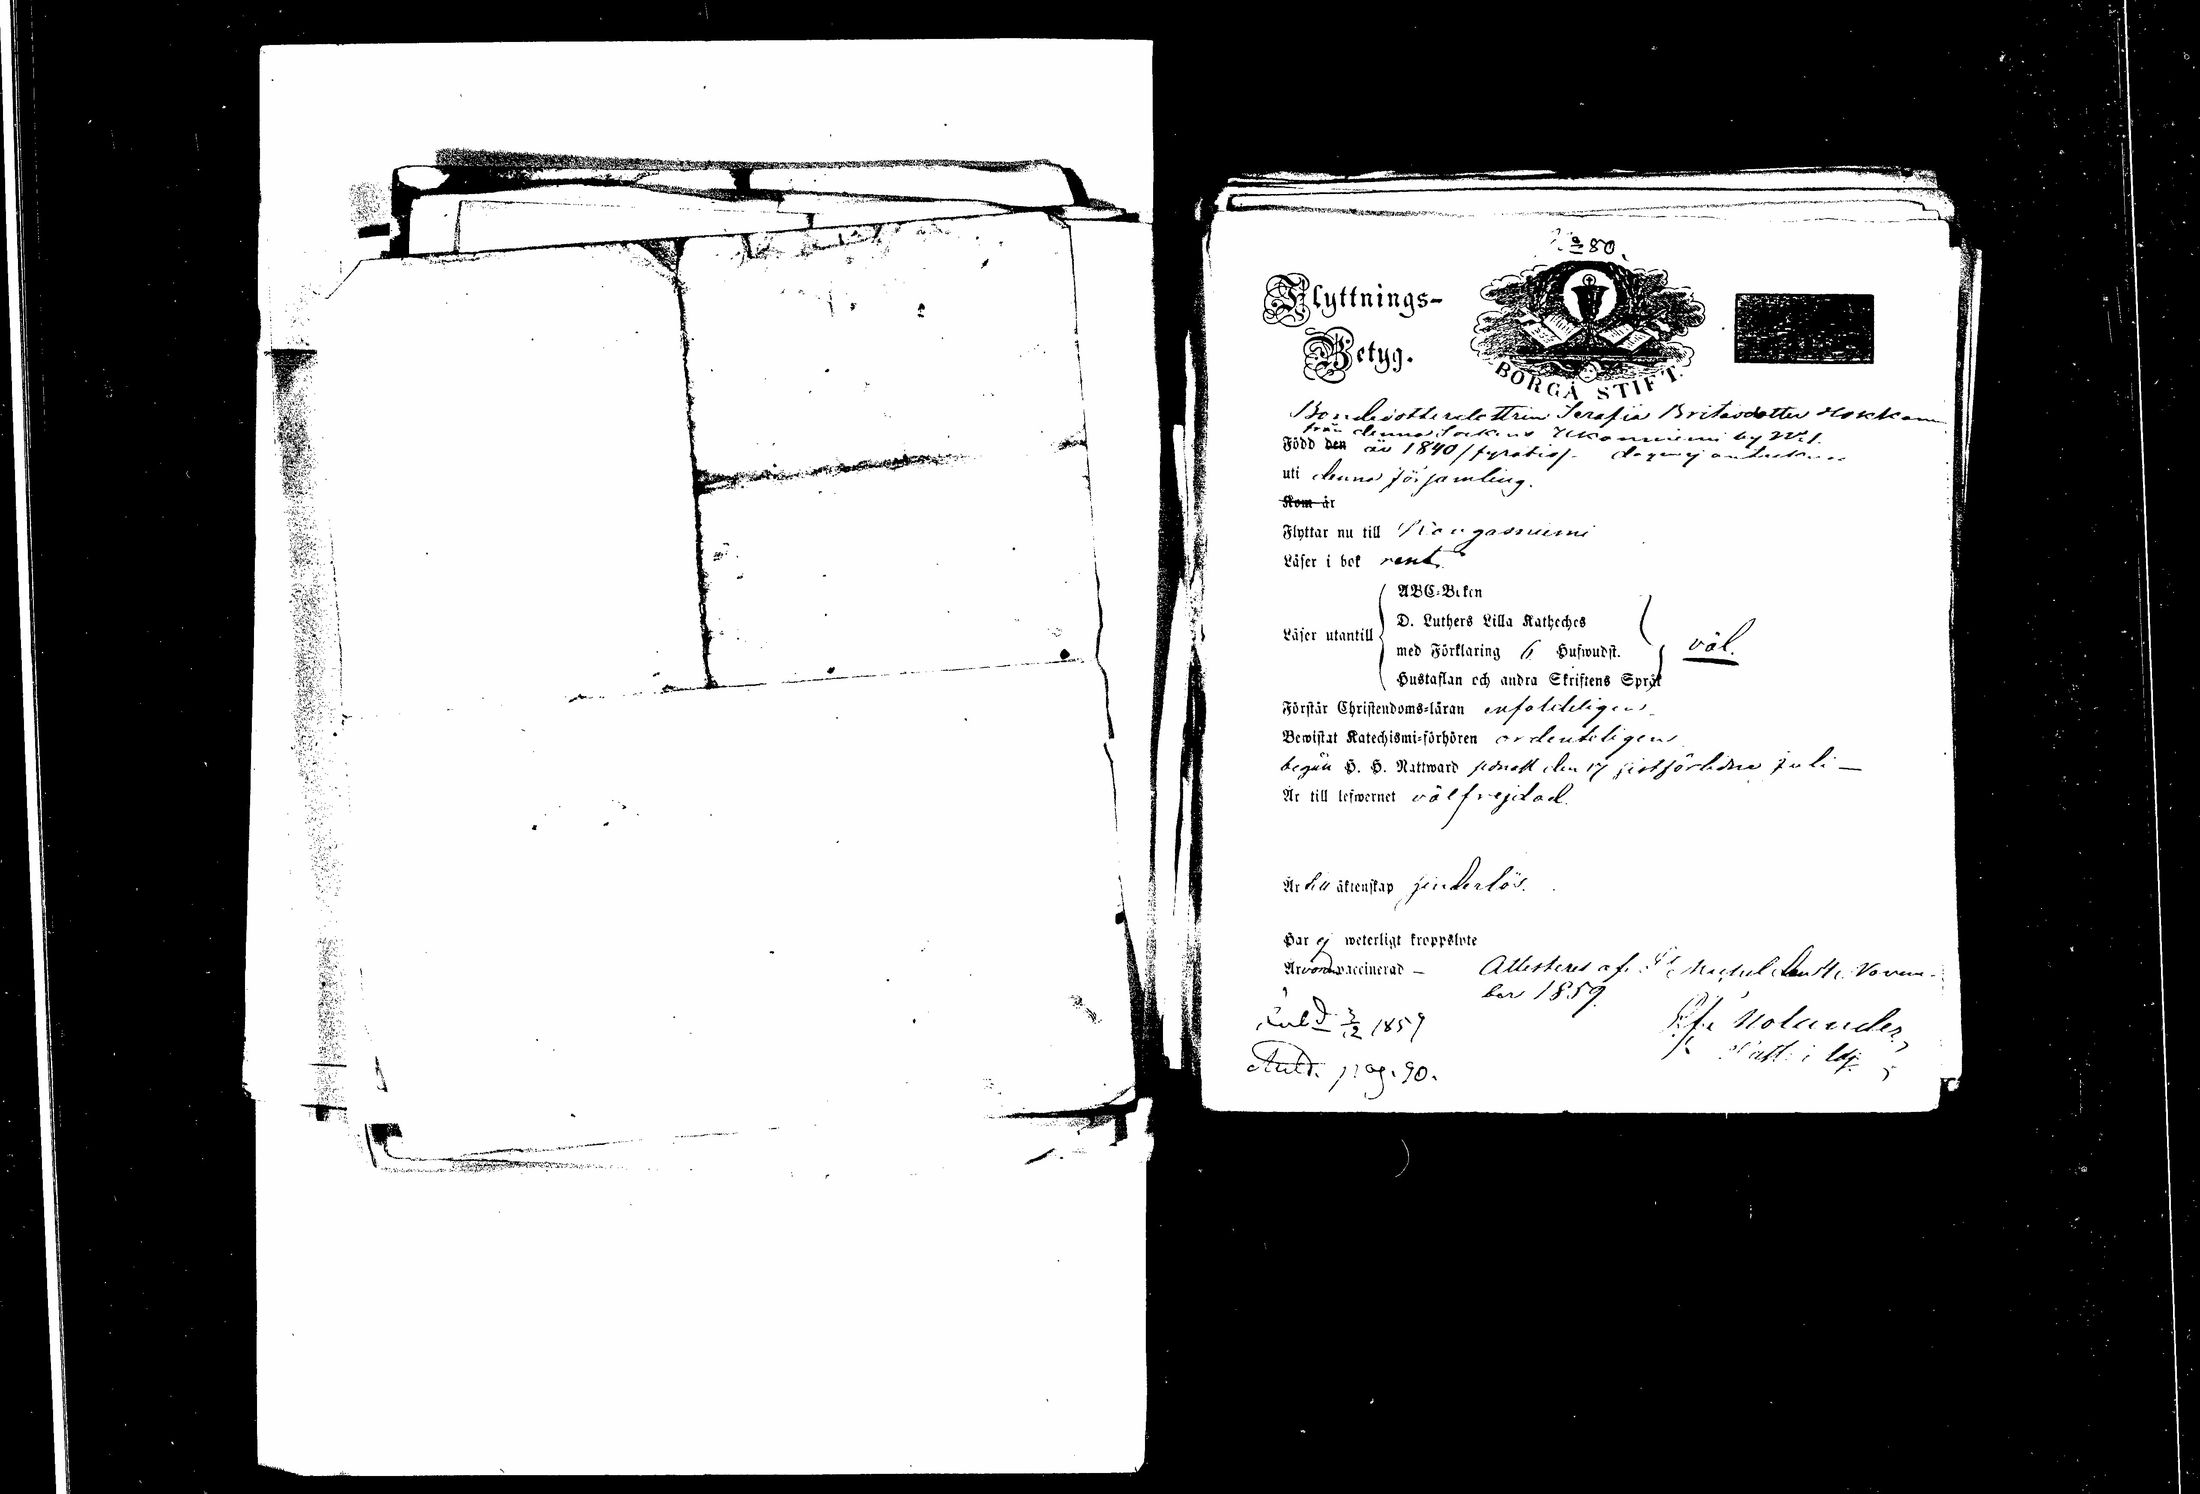 № 80.
Flyttnings-
Betyg.
BORGÅ STIFT.
Bondedotterdottren Serafia Britasdotter Hokkan
från denna Sockens Ukonniemi by № 1.
Född den år 1840 /fyratio/. dagen ej antecknad
uti denna församling.
Kom år
Flyttar nu till Kangasniemi
Läser i bok rent.
Läser utantill
ABC-Boken
D. Luthers Lilla Katheches
med Förklaring 6 Hufwudst.
Hustaflan och andra Skriftens Språk
väl.
Förstår Christendoms-läran enfaldeligen.
Bewistat Katechismi-förhören ordenteligen
begått H. H. Nattward senast den 17 sistförlidne Juli —
Är till lefwernet välfrejdad.
Är till äktenskap hinderlös.
Har ej weterligt kroppslyte
Är vaccinerad —
Attesteras af St Michel den 11 Novem-
ber 1859.
Molander
Anld 3/12 1859
pag. 90.